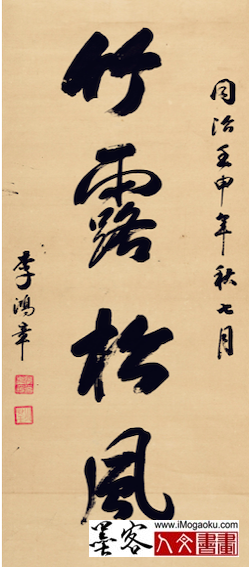 同治壬申年秋七月
竹露松風
李鴻章
www.iMogaoku.com
墨客
人文書畫